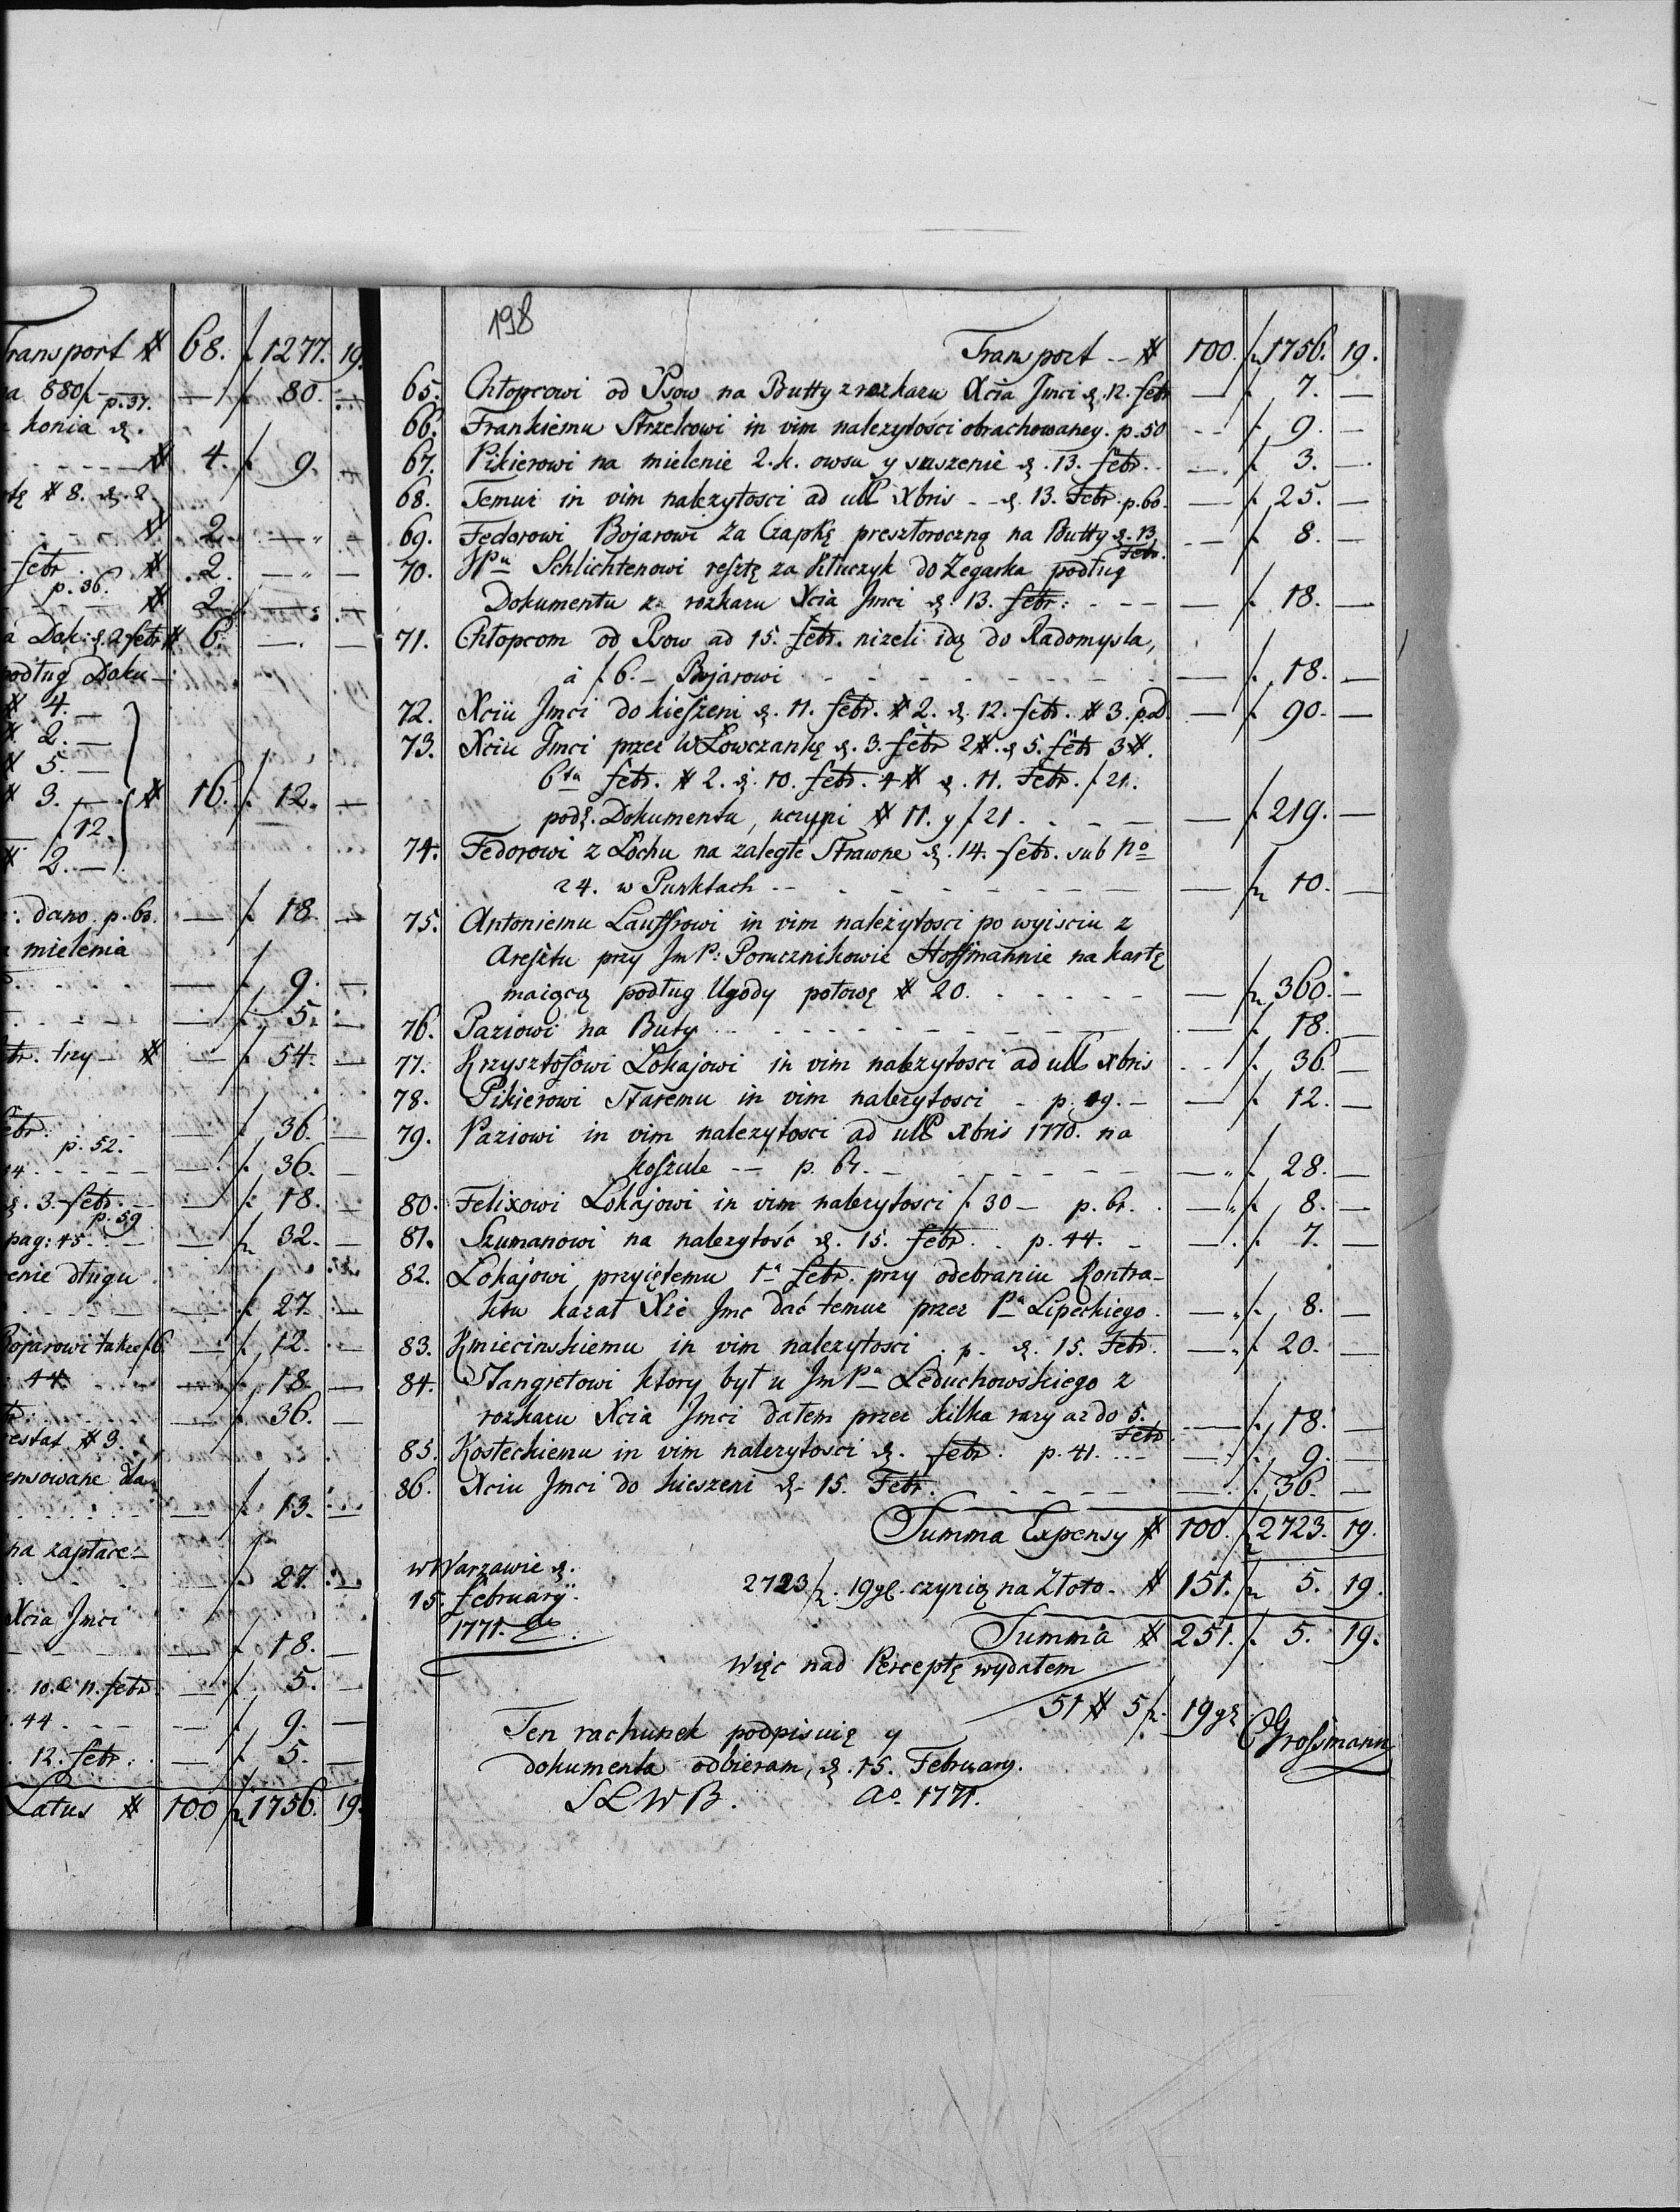 Transport # 68. f 1277. 19.
a 880f - p. 37. — f 80. —
konia d.
- - - - # 4. f 9. —
tę # 8. d. 8
# 2. — " —
febr. # 2. — " —
p. 36. # 2. — —
a Dok: d. 2 febr # 6. — —
podług Doku-
# 4. —
# 2. —
# 5. —
# 3. — # 16. f 12. —
— f 12.
# 2. —
: dano. p. 60. — f 18. —
mielenia
— f 9. —
— f 5. —
tr. trzy — # — f 54. —
febr: — f 36. —
p. 52.
14 - - - - — f 36. —
d. 3. febr. — — f 18. —
p. 59
pag: 45. — f 32. —
enie długu
— f 27. —
Bojarowi także f 6. — f 12. —
44. — f 18. —
— f 36. —
estat # 3.
ensowane dla
— f 13. —
na zapłace-
— f 27. —
Xcia Jmci
— f 18. —
10. e 11. febr. — f 5. —
. 44. - - — f 9. —
. 12. febr: — f 5. —
Latus # 100 f 1756. 19.
198
Transport -- # 100. f 1756. 19.
65. Chłopcowi od Psow na Butty z rozkazu Xcia Jmci d. 12. febr — f 7. —
66. Frankiemu Strzelcowi in vim nalezytości obrachowaney. p. 50 -- f 9. —
67. Pikierowi na mielenie 2. k. owsa y suszenie d. 13. febr. — f 3. —
68. Temuż in vim nalezytosci ad ult Xbris -- d. 13. Febr. p. 60. — f 25. —
69. Fedorowi Bojarowi za Czapkę presztoroczną na Butty d. 13. -- f 8. —
Febr.
70. JPu Schlichtenowi resztę za Kluczyk do Zegarka podług
Dokumentu z rozkazu Xcia Jmci d. 13. febr: - - - — f 18. —
71. Chłopcom od Psow ad 15. febr. nizeli idą do Radomysla,
à f 6. - Bojarowi - - - - - — f 18. —
72. Xciu Jmci do kieszeni d. 11. febr. # 2. d. 12. febr. # 3. p. d. — f 90. —
73. Xciu Jmci przez W Łowczankę d. 3. febr 2 #. d 5. febr 3 #.
6ta febr. # 2. d. 10. febr. 4 # d. 11. Febr. f 21.
podł. Dokumentu, uczyni # 11. y f 21. - - - — f 219. —
74. Fedorowi z Lochu na zaległe Strawne d. 14. febr. sub No
24. w Punktach - - - - - - — f 10. —
75. Antoniemu Lauffrowi in vim należytosci po wyisciu z
Aresztu przy Jm P: Porucznikowie Hoffmannie na kartę
maiącą podług Ugody połowę # 20. - - - - — f 360. —
76. Paziowi na Buty - - - - - - - — f 18. —
77. Krzysztofowi Lokajowi in vim nalezytosci ad ult Xbris - - f 36. —
78. Pikierowi Staremu in vim nalezytosci - p. 49. — — f 12. —
79. Paziowi in vim nalezytosci ad ult Xbris 1770. na
koszule -- p. 61. - - - - - - — " f 28. —
80. Felixowi Lokajowi in vim nalezytosci f 30 — p. 61. — " f 8. —
81. Szumanowi na nalezytość d. 15. febr. . p. 44. - — f 7. —
82. Lokajowi przyiętemu 1a febr. przy odebraniu Kontra-
ktu kazał Xże Jmc dać temuz przez Pa Lipeckiego. — " f 8. —
83. Kmiecinskiemu in vim nalezytosci . p. d. 15. Febr. — " f 20. —
84. Stangretowi ktory był u Jm Pa Leduchowskiego z
rozkazu Xcia Jmci dałem przez kilka razy az do 5. — f 18. —
Febr
85. Kosteckiemu in vim nalezytosci d. febr: p. 41. --- — f 9. —
86. Xciu Jmci do kieszeni d. 15. Febr. - - - - — f 36. —
Summa Expensy # 100. f 2723. 19.
w Warzawie d.
2723 f. 19 gl. czynią na Złoto - # 151. f 5. 19.
15. february.
1771.
Summa # 251. f 5. 19.
Więc nad Perceptę wydałem
51 # 5 f. 19 gl
Ten rachunek podpisuię y
CGrossmann
dokumenta odbieram, d. 15. February.
SLWB. Ao. 1771.